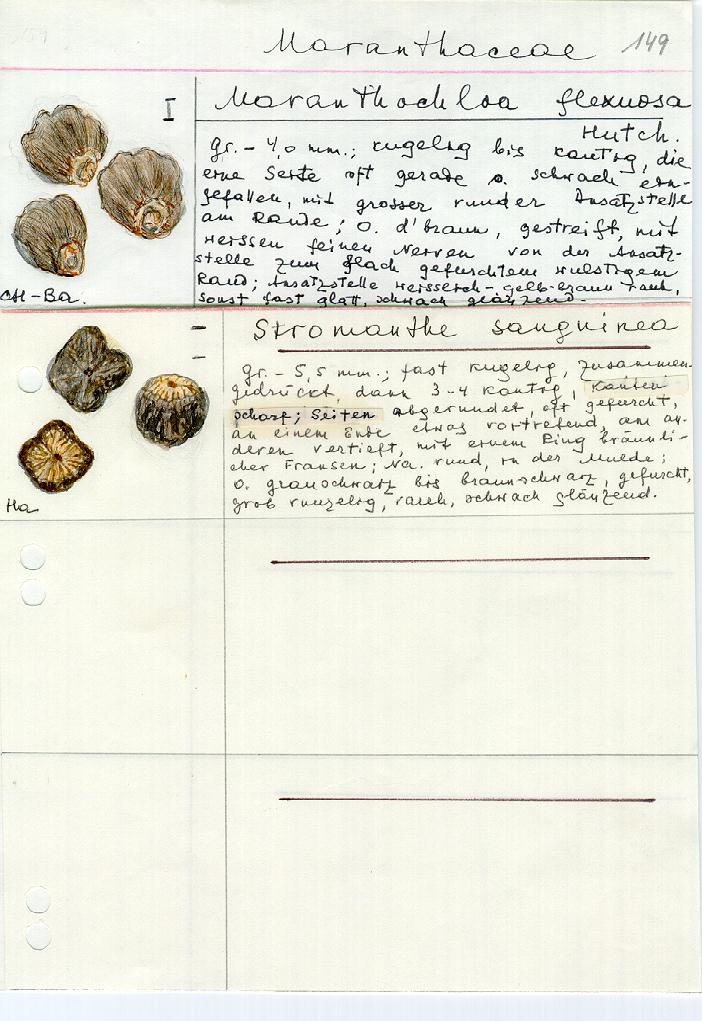 Maranthaceae 149
I
Maranthochloa flexuosa
Hutch.
gr. – 4,0 mm.; kugelig bis kantig, die
eine Seite oft gerade o. schwach ein-
gefallen, mit grosser runder Ansatzstelle
am Rande; O. d'braun, gestreift, mit
weissen feinen Nerven von der Ansatz-
stelle zum flach gefurchtem wulstigem
Rand; Ansatzstelle weisserch-gelb-braun rauh,
sonst fast glatt, schwach glänzend.
CH-Ba.
Stromanthe sanguinea
gr. – 5,5 mm.; fast kugelig, zusammen-
gedrückt, dann 3-4 kantig, Kanten
scharf; Seiten abgerundet, oft gefurcht,
an einem Ende etwas vortretend, am an-
deren vertieft, mit einem Ring bräunli-
cher Fransen; Na. rund, in der Mulde;
O. grauschwarz bis braun-schwarz, gefurcht,
grob runzelig, rauh, schwach glänzend.
Ha